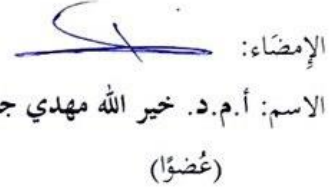 الإِمضَاء:
الاسم: أ.م.د. خير الله مهدي
(عُضوًا)